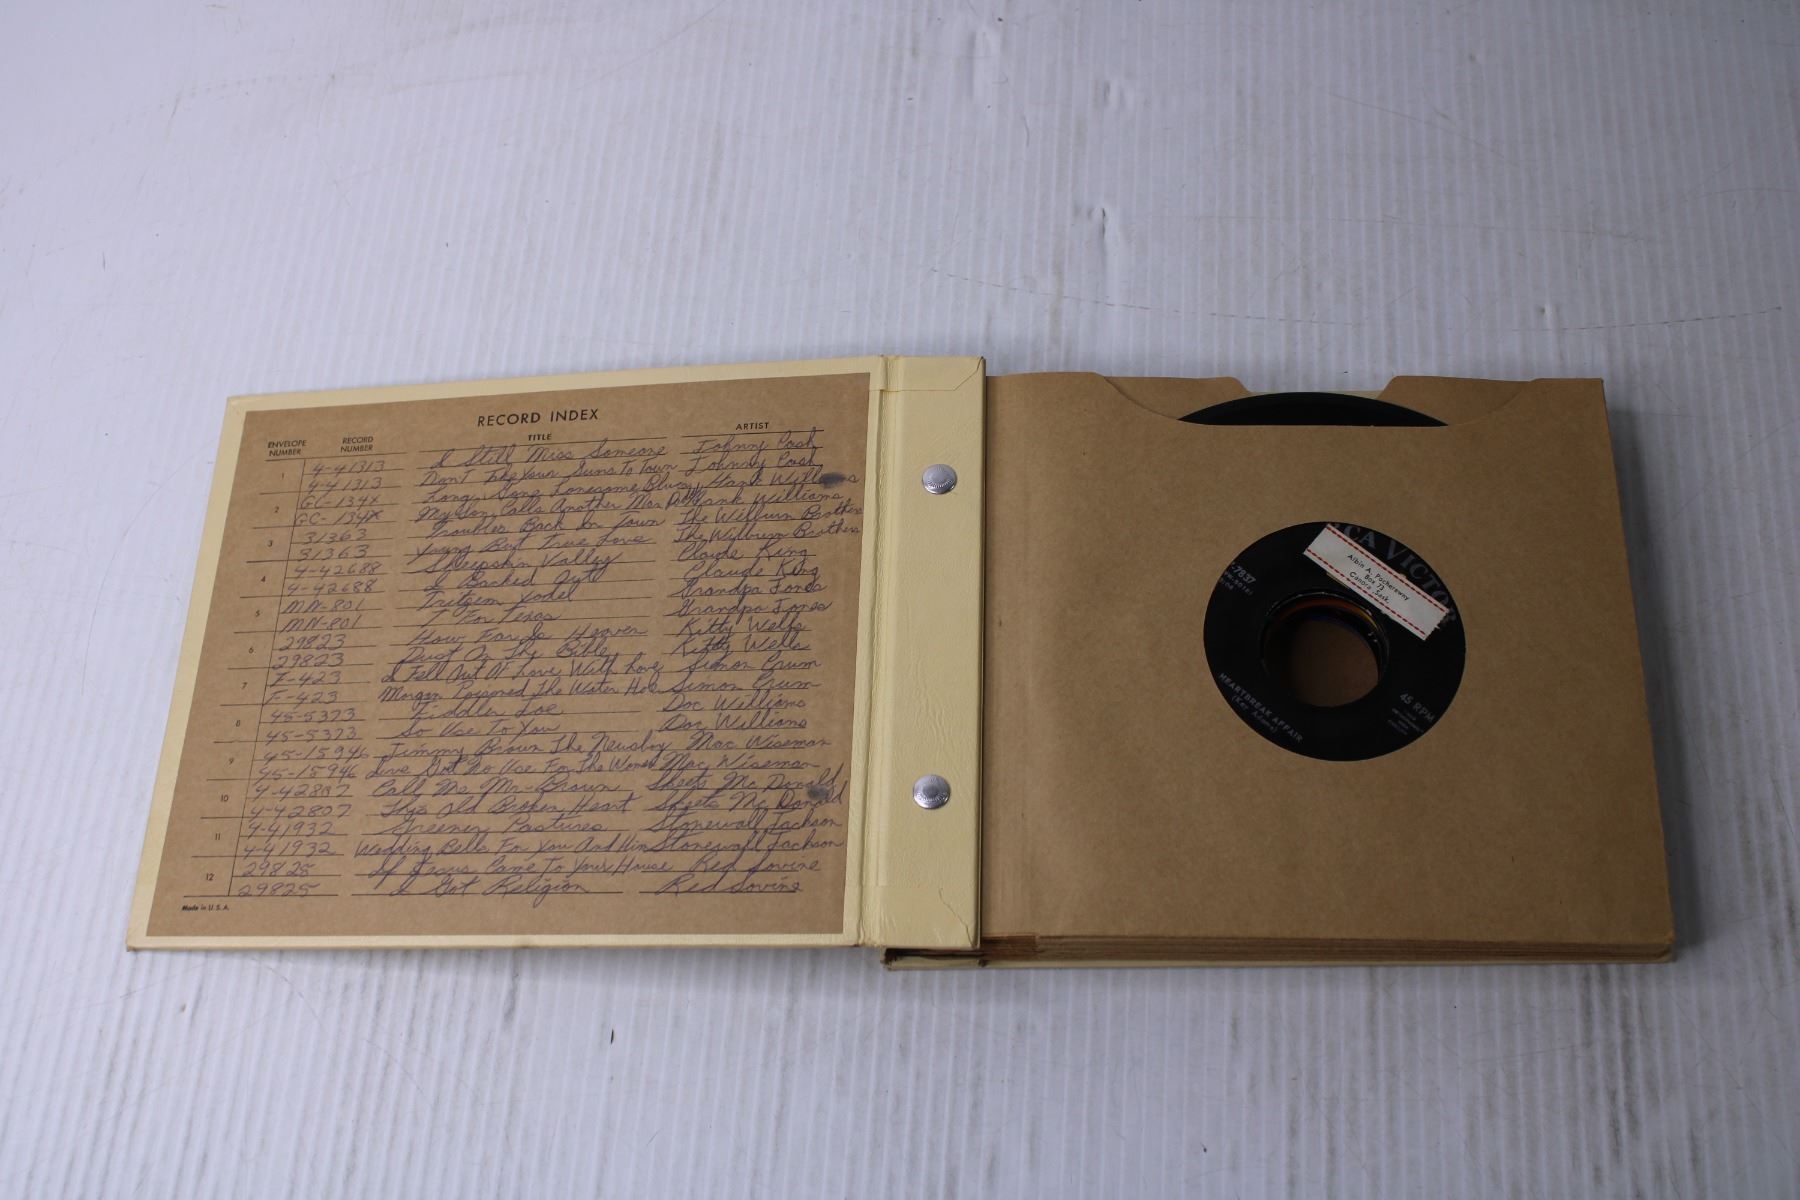 RECORD INDEX
ENVELOPE NUMBER RECORD NUMBER TITLE ARTIST
1 4-41313 I Still Miss Someone Johnny Cash
4-41313 Don't Take Your Guns To Town Johnny Cash
2 GC-134X Long Gone Lonesome Blues Hank Williams
GC-134X My Son Calls Another Man Daddy Hank Williams
3 31363 Troubles Back In Town The Wilburn Brothers
31363 Young But True Love The Wilburn Brothers
4 4-42688 Sheepskin Valley Claude King
4-42688 I Backed Claude King
5 MN-801 Tritzem Yodel Grandpa Jones
MN-801 T For Texas Grandpa Jones
6 29823 How Far Is Heaven Kitty Wells
29823 Dust On The Bible Kitty Wells
7 F-423 I Fell Out Of Love With Love Simon Crum
F-423 Morgan Poisoned The Water Hole Simon Crum
8 45-5373 Fiddler Joe Doc Williams
45-5373 So Use To You Doc Williams
9 45-15946 Jimmy Brown The Newsboy Mac Wiseman
45-15946 I've Got No Use For The Women Mac Wiseman
10 4-42807 Call Me Mr-Brown Skeets McDonald
4-42807 This Old Broken Heart Skeets McDonald
11 4-41932 Greener Pastures Stonewall Jackson
4-41932 Wedding Bells For You And Him Stonewall Jackson
12 29825 If Jesus Came To Your House Red Sovine
29825 I Got Religion Red Sovine
Made in U.S.A.
RCA VICTOR
7837
Albin A.
Box 73
Canora, Sask.
45 RPM
HEARTBREAK AFFAIR
(Kay Adams)